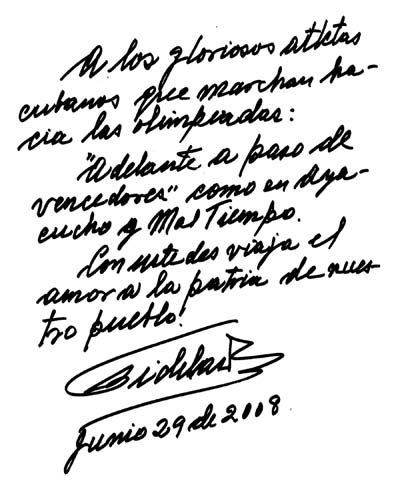 A los gloriosos atletas
cubanos que marchan ha-
cia las olimpiadas:
"Adelante a paso de
vencedores" como en Aya-
cucho y Mal Tiempo.
Con ustedes viaja el
amor a la patria de nues-
tro pueblo!
Fidel Cas
Junio 29 de 2008